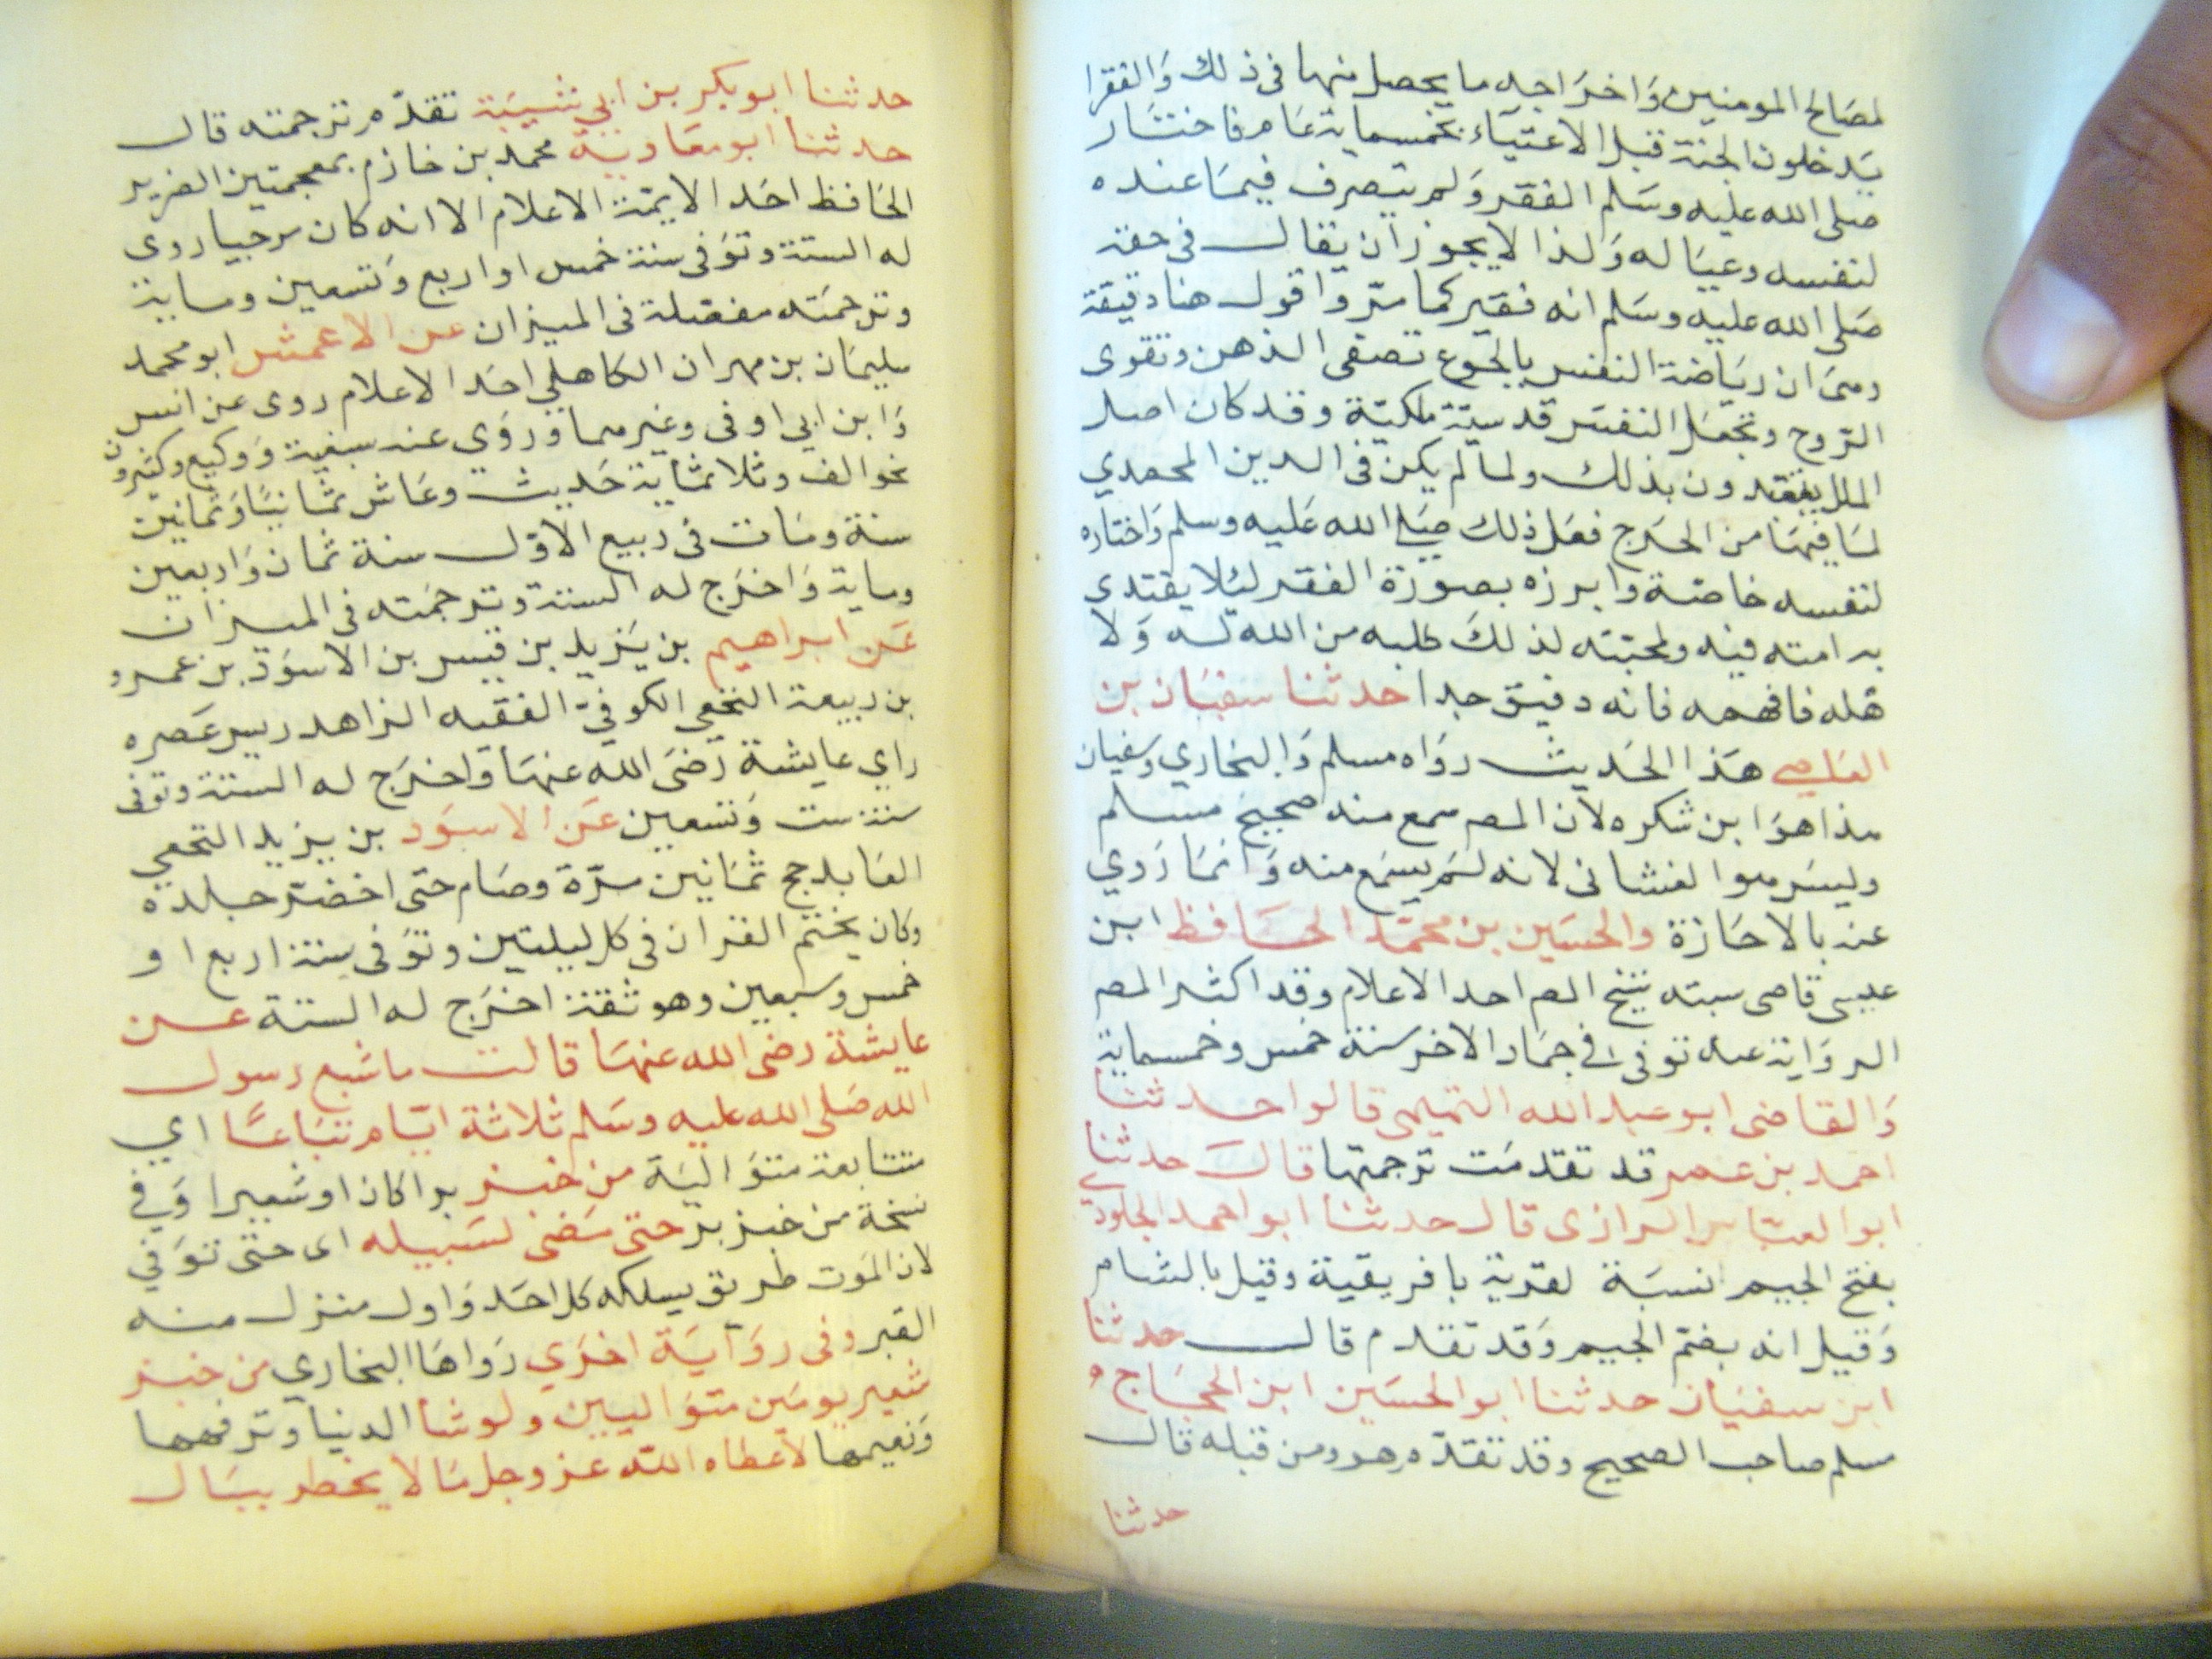 لمصالح المومنين واخراجه ما يحصل منها في ذلك والفقرا
يدخلون الجنة قبل الاغنياء بخمسماية عام فاختار
صلى الله عليه وسلم الفقر ولم يتصرف فيما عنده
لنفسه وعياله ولذا لا يجوز ان يقال في حقه
صلى الله عليه وسلم انه فقير كما مر واقول هنا دقيقة
وهي ان رياضة النفس بالجوع تصفى الذهن وتقوى
الروح وتجعل النفس قدسية ملكية وقد كان اصل
الملل يتعبدون بذلك ولما لم يكن في الدين المحمدي
لما فيها من الحرج فعل ذلك صلى الله عليه وسلم واختاره
لنفسه خاصة وابرزه بصورة الفقر ليلا يقتدى
به امته فيه ولمحبته لذلك طلبه من الله له ولا
هله فافهمه فانه دقيق جدا حدثنا سفيان بن
العاصي هذا الحديث رواه مسلم والبخاري وسفيان
هذا هو ابن شكره لان المص سمع منه صحيح مسلم
وليس هو الغشانى لانه لم يسمع منه وانما روي
عنه بالاجازة والحسين بن محمد الحافظ ابن
عيسى قاضى سبته شيخ المص احد الاعلام وقد اكثر المص
الرواية عنه توفي في جماد الاخر سنة خمس وخمسماية
والقاضى ابو عبد الله التميمى قالوا حدثنا
احمد بن عمر قد تقدمت ترجمتها قال حدثنا
ابو العباس الرازى قال حدثنا ابو احمد الجلودي
بفتح الجيم نسبة لقرية بافريقية وقيل بالشام
وقيل انه بضم الجيم وقد تقدم قال حدثنا
ابن سفيان حدثنا ابو الحسين ابن الحجاج
مسلم صاحب الصحيح وقد تقدم هو ومن قبله قال
حدثنا
حدثنا ابو بكر بن ابي شيبة تقدم ترجمته قال
حدثنا ابو معاوية محمد بن خازم بمعجمتين الضرير
الحافظ احد الايمة الاعلام الا انه كان مرجيا روى
له الستة وتوفى سنة خمس او اربع وتسعين وماية
وترجمته مفصلة في الميزان عن الاعمش ابو محمد
سليمان بن مهران الكاهلي احد الاعلام روى عن انس
وابن ابي اوفى وغيرهما وروي عنه سفية ووكيع وكثيرون
نحو الف وثلاثماية حديث وعاش ثمانيا وثمانين
سنة ومات في ربيع الاول سنة ثمان واربعين
وماية واخرج له الستة وترجمته في الميزان
عن ابراهيم بن يزيد بن قيس بن الاسود بن عمرو
بن ربيعة النخعي الكوفي الفقيه الزاهد رييس عصره
راي عايشة رضى الله عنها واخرج له الستة وتوفى
سنة ست وتسعين عن الاسود بن يزيد النخعي
العابد حج ثمانين مرة وصام حتى اخضر جلده
وكان يختم القران في كل ليلتين وتوفى سنة اربع او
خمس وسبعين وهو ثقة اخرج له الستة عن
عايشة رضى الله عنها قالت ما شبع رسول
الله صلى الله عليه وسلم ثلاثة ايام تباعا اي
متتابعة متوالية من خبز برا كان او شعيرا وفي
نسخة من خبز بر حتى مضى لسبيله اى حتى توفي
لان الموت طريق يسلكه كل احد واول منزل منه
القبر وفى رواية اخري رواها البخاري من خبز
شعير يومين متواليين ولو شا الدنيا وترفهها
ونعيمها لاعطاه الله عز وجل ما لا يخطر ببال